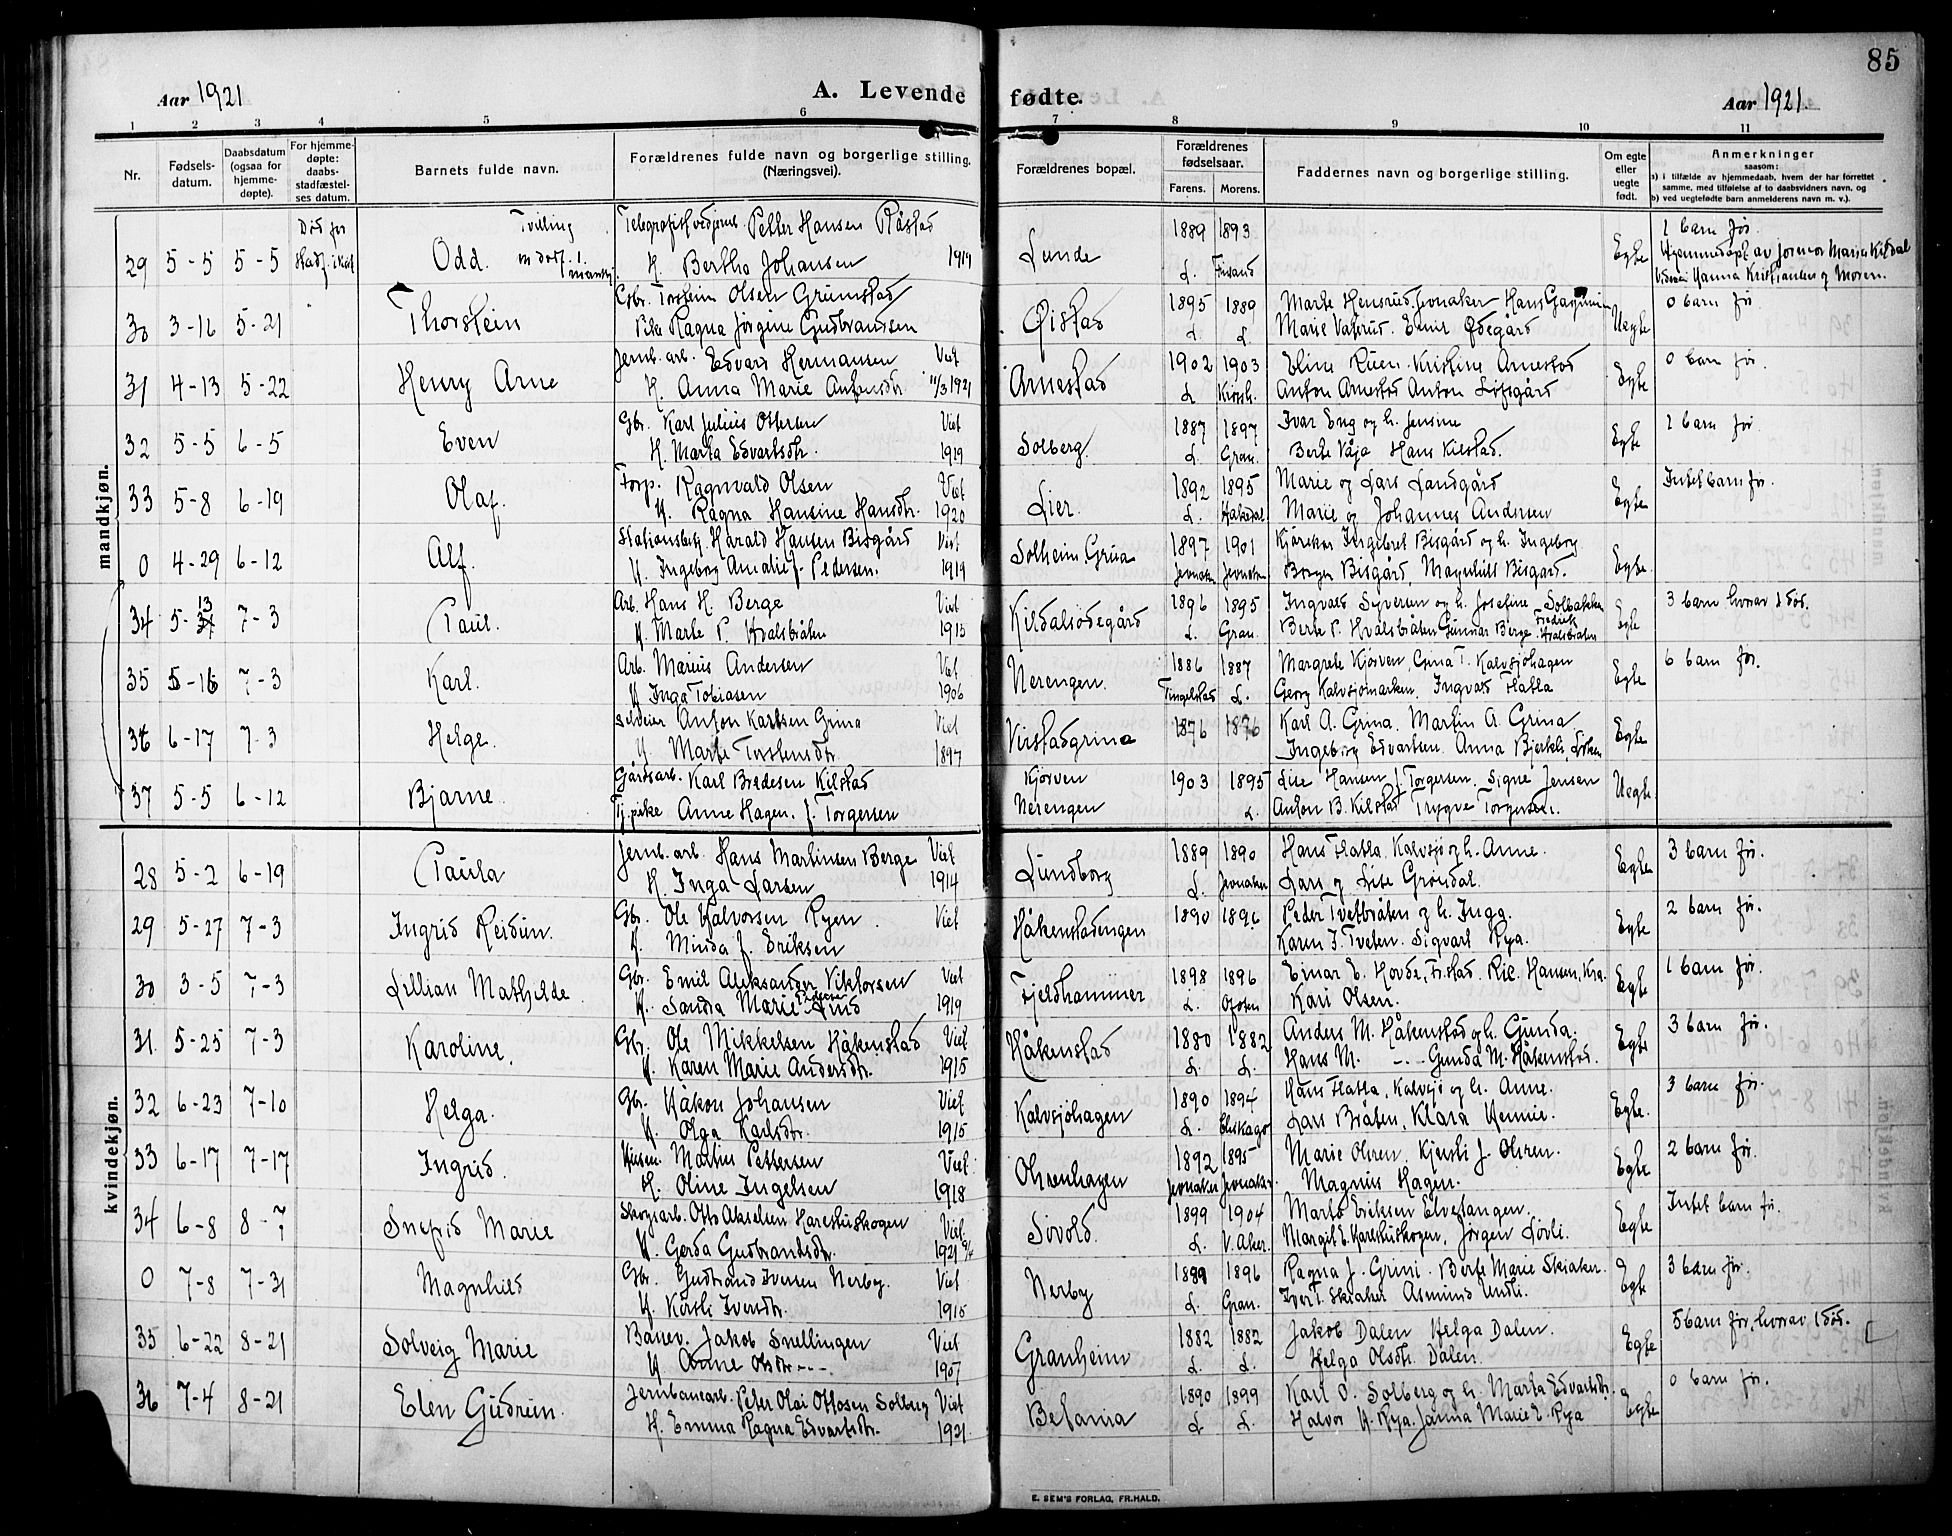 85
Aar 1921
A. Levende fødte.
Aar 1921.
1 2 3 4 5 6 7 8 9 10 11
Nr.
Fødsels-
datum.
Daabsdatum
(ogsaa for
hjemme-
døpte).
For hjemme-
døpte:
daabs-
stadfæstel-
ses datum.
Barnets fulde navn.
Forældrenes fulde navn og borgerlige stilling.
(Næringsvei).
Forældrenes bopæl.
Forældrenes
fødselsaar.
Farens. Morens.
Faddernes navn og borgerlige stilling.
Om egte
eller
uegte
født.
Anmerkninger
saasom:
a) i tilfælde av hjemmedaab, hvem der har forrettet
samme, med tilføielse af to daabsvidners navn, og
b) ved uegtefødte barn anmelderens navn m. v.).
mandkjøn.
Død før Tvilling Petter Hansen Råstad 1889 1893 1 barn før.
29 5-5 5-5 Odd. H. Bertha Johansen Lunde L. Egte Hjemmedøpt av formor Marie Kildal
Hanna Kristiansen og Moren.
Gbr. Torstein Olsen Grimstad 1895 1889 Marte Hensrud, Jevnaker 0 barn før
30 3-16 5-21 Thorstein Pike Ragna Jørgine Gudbrandsen Øistad L. L. Emil Ødegård Uegte
Jernb. arb. Edvard Hermansen Viet 1902 1903 Eline Ruen. Kristine Arnestad 0 barn før.
31 4-13 5-22 Henry Arne H. Anna Marie 11/3 1921 Arnestad L. Anton Arnestad Anton Egte
Gbr. Karl Julius Ottersen Viet 1887 1897 Ivar Eng og h. Jensine 1 barn før.
32 5-5 6-5 Even H. Marta Edvartsdtr. 1919 Solberg. L. Gran. Berte Våja Hans Kilstad. Egte
Forp. Ragnvald Olsen Viet 1892 1895 Marie og Lars Landgård Intet barn før.
33 5-8 6-19 Olaf. H. Ragna Hansine Hansdtr. 1920 Lier. L. Hakedal Marie og Johannes Andersen Egte
Stationsbetj. Harald Hansen Bisgård Viet 1897 1901 Kjørekar Ingebret Bisgård og h. Ingeborg
0 4-29 6-12 Alf. H. Ingeborg Amalie f. Pedersen. 1919 Solheim, Grua Jevnaker Jevnaker Borger Bisgård, Magnhild Bisgård. Egte.
Arb. Hans H. Berge Viet 1896 1895 Ingvald Syversen og h. Josefine Solbakken 3 barn hvorav 1 død.
34 5-13 7-3 Paul. H. Marte P. Hvalsbråten 1915 Kildalsødegård L. Gran. Berte P. Hvalsbråten Gunnar Berge. Fredrik Hvalsbråten Egte
Arb. Marius Andersen Viet 1886 1887 Margrete Kjørven, Gina T. Kalvsjøhagen 6 barn før.
35 5-16 7-3 Karl. H. Inga Tobiasen 1906 Nerengen. Tingelstad L. Georg Kalvsjømarken, Ingvald Flatla Egte
Selveier Anton Karlsen Grina Viet 1876 1876 Karl A. Grina. Martin A. Grina
36 6-17 7-3 Helge. H. Marte Torstensdtr. 1897 Virstadgrina Ingeborg Edvartsen. Anna Bjerkli, Egte
Gårdsarb. Karl Bredesen Kilstad Kjørven 1903 1895 Lise Hansen f. Torgersen. Signe Jensen
37 5-5 6-12 Bjarne. Tj.pike Anne Hagen. f. Torgersen Nerengen L. Anton B. Kilstad Trygve Torgersen. Uegte.
kvindekjøn.
Jernb. arb. Hans Martinsen Berge Viet 1889 1890 Hans Flatla, Kalvsjø og h. Anne. 3 barn før.
28 5-2 6-19 Paula H. Inga Larsen 1914 Lundborg L. Jevnaker Lars og Lise Grøndal. Egte
Gbr. Ole Halvorsen Ryen Viet 1890 1896 Peder Tvetbråten og h. Inga. 2 barn før.
29 5-27 7-3 Ingrid Reidun. H. Minda f. Eriksen Håkenstadengen Karen J. Tveten. Sigvart Rya. Egte
Gbr. Emil Aleksander Viktorsen Viet 1898 1896 Einar E. Hovde, Hansen, Kra. 1 barn før.
30 3-5 7-3 Lillian Mathilde H. Sanda Marie Pedersen Lund 1919 Fjeldhammer L. Ofoten Kari Olsen. Egte
31. 5-25 7-3 Karoline. Gbr. Ole Mikkelsen Håkenstad Viet 1880 1882 Anders M. Håkenstad og h. Gunda. 3 barn før.
H. Karen Marie Andersdtr. 1915 Håkenstad L. L. Hans M. -"- Gunda M. Håkenstad. Egte
32 6-23 7-10 Helga. Gbr. Håkon Johansen Viet 1890 1894 Hans Flatla, Kalvsjø og h. Anne. 3 barn før.
H. Olga Karlsdtr. 1915 Kalvsjøhagen L. Lars Bråten, Klara Hennie. Egte.
33 6-17 7-17 Ingrid. Martin Pettersen Viet 1892 1895 Marie Olsren. Kjersti J. Olsren. 2 barn før.
H. Oline Ingelsen 1918 Olsrenhagen Jevnaker Jevnaker. Magnus Hagen. Egte
34 6-8 8-7 Snefrid Marie Skogsarb. Otto Akselsen Harestuskogen Viet 1899 1904 Marta Eriksen Elvetangen. Intet barn før.
H. Gerda Gudbrandsdtr. 1921 9/4 Sivold. L. V. Aker. Margit E. Karlstuskogen, Jørgen Lövli. Egte
0 7-8 7-31 Magnhild Gbr. Gudbrand Iversen Nerby. Viet 1889 1896 Ragna J. Grini. Berte Marie Skiaker. 3 barn før.
H. Kirsti Iversdtr. 1915 Nerby L. Gran. Iver T. Skiaker Asmund Undli. Egte
35 6-22 8-21 Solveig Marie Banev. Jakob Snellingen Viet 1882 1882 Jakob Dalen Helga Dalen. 5 barn før, hvorav 1 død.
H. Anne Olsdtr. -"- 1907 Granheim L. L. Helga Olsdtr. Dalen. Egte
36 7-4 8-21 Elen Gudrun. Jernbanearb. Peter Olai Ottosen Solberg Viet 1890 1899 Karl O. Solberg og h. Marta Edvartsdtr. 0 barn før.
H. Emma Ragna Edvartsdtr. 1921. Betania L. L. Halvor H. Rya. Janna Marie E. Rya Egte
E. SEM'S FORLAG, FR.HALD.